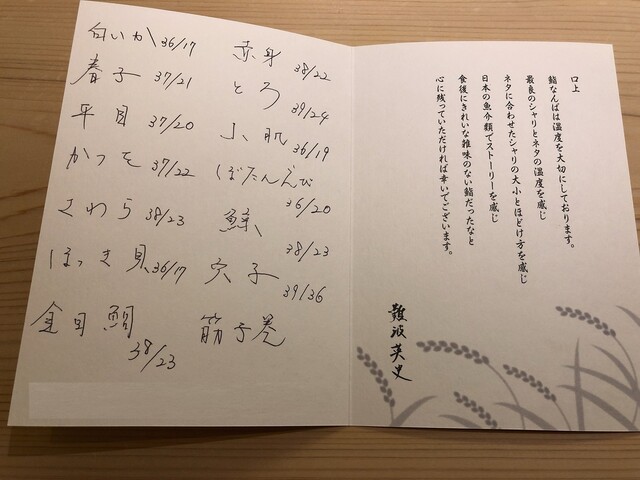 白いか 36/17
春子 37/21
平目 37/20
かつを 37/22
さわら 38/23
ほっき貝 36/17
金目鯛 38/23
赤身 38/22
とろ 39/24
小肌 36/19
ぼたんえび 36/20
鯵 38/23
穴子 39/36
筋子巻
口上
鮨なんばは温度を大切にしております。
最良のシャリとネタの温度を感じ
ネタに合わせたシャリの大小とほどけ方を感じ
日本の魚介類でストーリーを感じ
食後にきれいな雑味のない鮨だったなと
心に残っていただければ幸いでございます。
難波英史